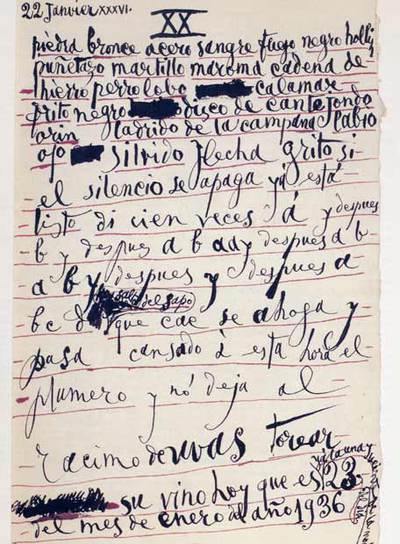 22 Janvier XXXVI.
XX
piedra bronce acero sangre fuego negro
puñetazo martillo maroma cadena de
hierro perro lobo calamar
grito negro disco de cante jondo
orin ladrido de la campana
ojo silvido flecha grito si
el silencio se apaga y está
listo di cien veces á y despues
b y despues a b a d y despues a b
a b y despues y despues a
b c d del sapo
que cae se ahoga y
pasa cansado á esta hora el
plumero y nó deja al
racimo de uvas torear
su vino hoy que es 23
del mes de enero del año 1936
y